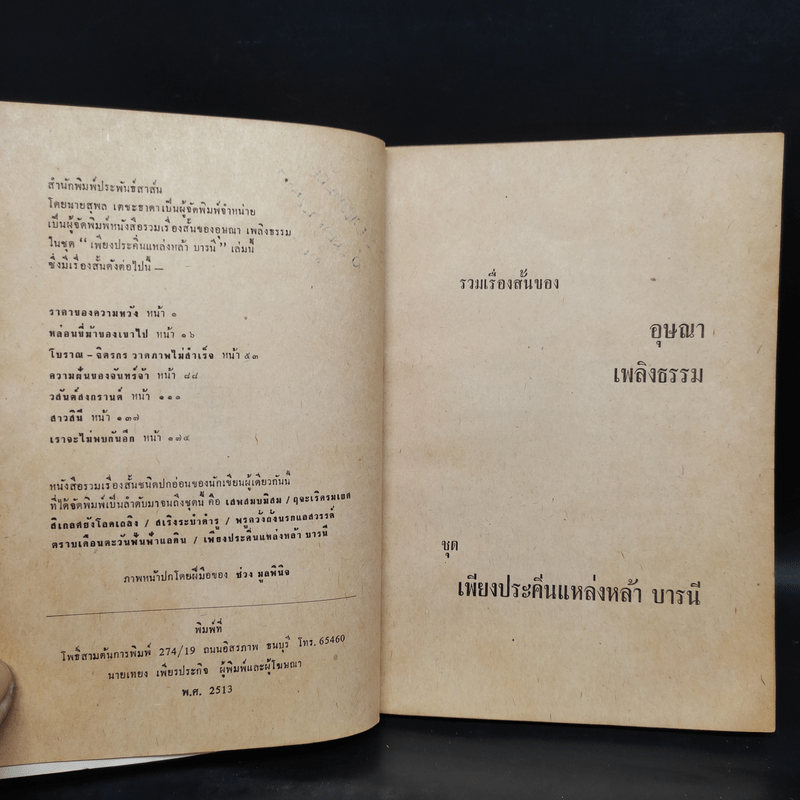 สำนักพิมพ์ประพันธ์สาส์น
โดยนายสุพล เตชะธาดาเป็นผู้จัดพิมพ์จำหน่าย
เป็นผู้จัดพิมพ์หนังสือรวมเรื่องสั้นของอุษณา เพลิงธรรม
ในชุด “ เพียงประคิ่นแหล่งหล้า บารนี ” เล่มนี้
ซึ่งมีเรื่องสั้นดังต่อไปนี้ —
ราคาของความหวัง หน้า ๑
หล่อนขี่ม้าของเขาไป หน้า ๑๖
โบราณ – จิตรกร วาดภาพไม่สำเร็จ หน้า ๕๓
ความฝันของจันทร์จ้า หน้า ๘๘
วสันต์สงกรานต์ หน้า ๑๑๑
สาวสินี หน้า ๑๓๗
เราจะไม่พบกันอีก หน้า ๑๗๕
หนังสือรวมเรื่องสั้นชนิดปกอ่อนของนักเขียนผู้เดียวกันนี้
ที่ได้จัดพิมพ์เป็นลำดับมาจนถึงชุดนี้ คือ เสพสมบมิสม /
/ สเริงระบำดำรู /
/ เพียงประคิ่นแหล่งหล้า บารนี
ภาพหน้าปกโดยฝีมือของ ช่วง มูลพินิจ
พิมพ์ที่
โพธิ์สามต้นการพิมพ์ 274/19 ถนนอิสรภาพ ธนบุรี โทร. 65460
นายเทยง เพียรประกิจ ผู้พิมพ์และผู้โฆษณา
พ.ศ. 2513
รวมเรื่องสั้นของ
อุษณา
เพลิงธรรม
ชุด
เพียงประคิ่นแหล่งหล้า บารนี